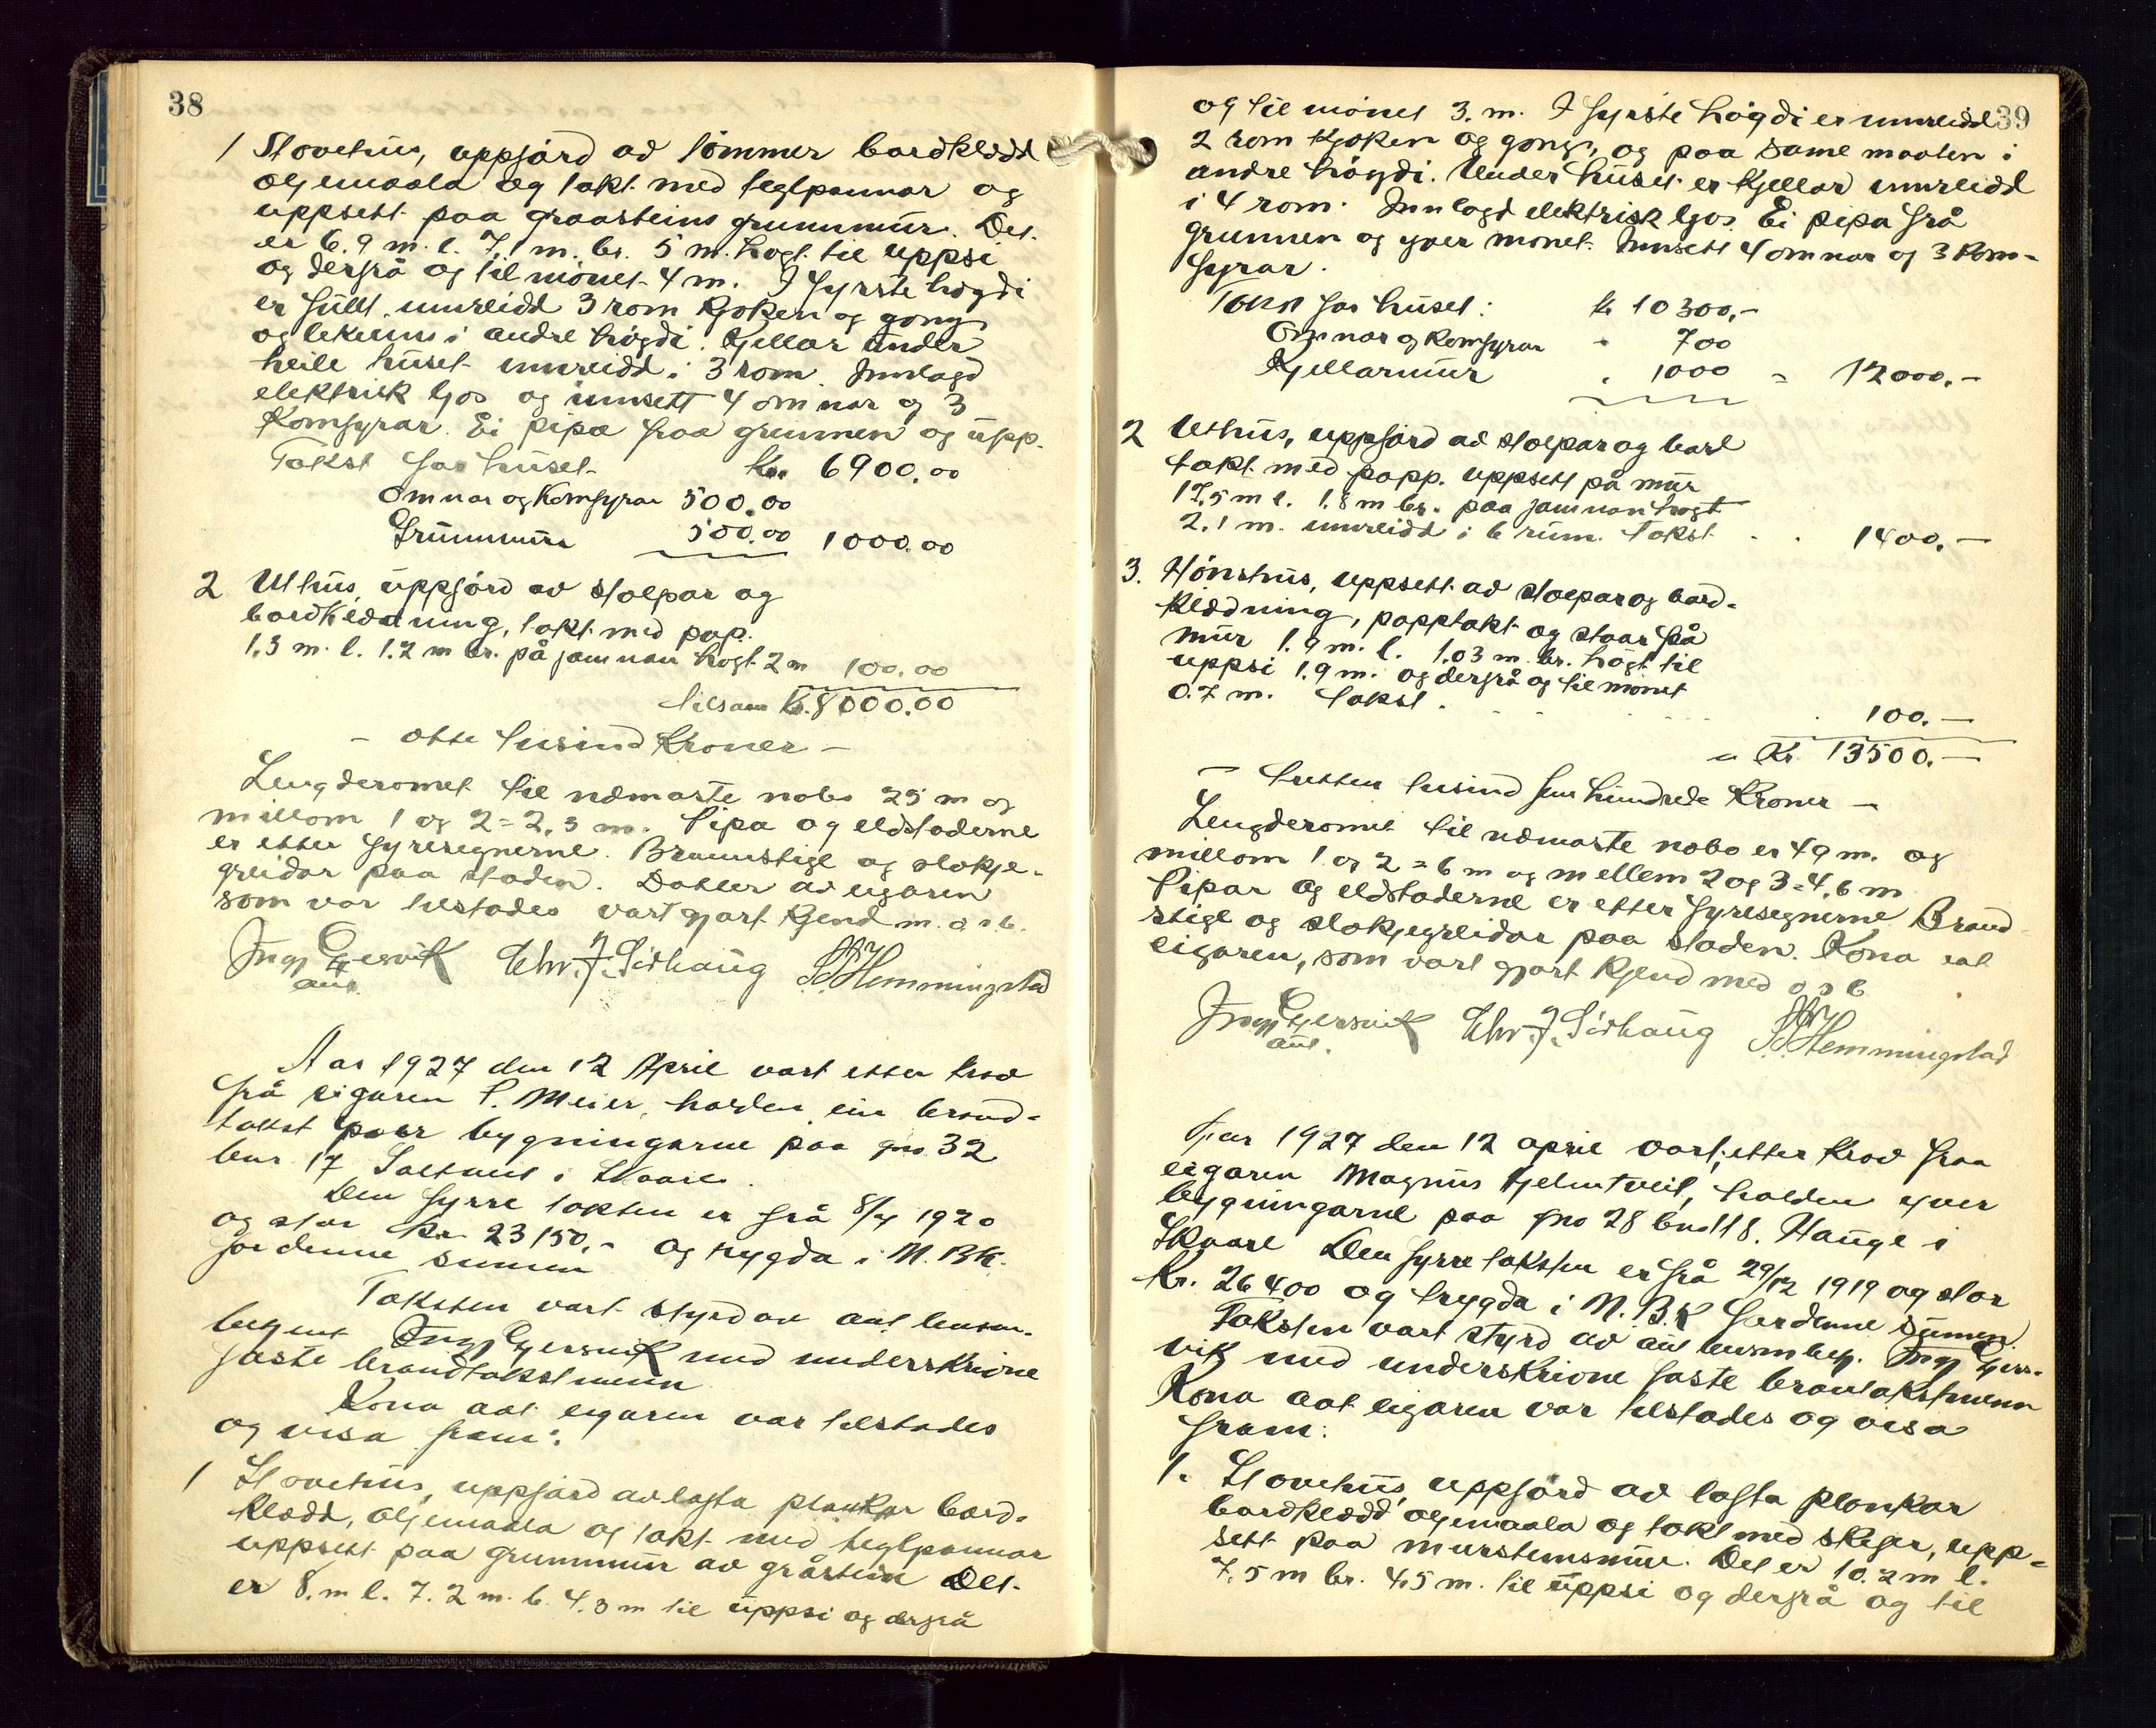 38
1 Stovehus, uppförd av tömmer bordklædd
oljemaala og takt med teglpannar og
uppsett paa graasteins grunnmur. Det
er 6.9 m. l. 7.1 m. br. 5 m. högt til uppsi
og derfrå og til mönet 4 m. I fyrste högdi
er fullt innreidd 3 rom kjöken og gong
og likeeins i andre högdi. Kjellar under
heile huset innreidd i 3 rom. Innlagd
elektrisk ljos og innsett 4 omnar og 3
Komfyrar. Ei pipa fraa grunnen og upp.
Takst for huset Kr. 6900.00
Omnar og Komfyrar 500.00
Grunnmur 500.00 1000.00
2 Uthus, uppförd av stolpar og
bordklædning, takt med pap.
1.3 m. l. 1.2 m br. på jamnan högt 2 m 100.00
tilsam Kr. 8000.00
- otte tusind Kroner -
Lengderomet til næmaste nabo 25 m og
millom 1 og 2 = 2,3 m. Pipa og eldstaderne
er etter fyresegnerne. Brannstige og slökje-
greidar paa staden. Datter av eigaren
som var tilstades vart gjort kjend m. o s b.
Ingv Gjersvik Chr. J. Sörhaug S. S. Hemmingstad
aut.
Aar 1927 den 12 April vart etter krav
frå eigaren P. Meier, halden ein brand-
takst paar bygningarne paa gno 32
bnr 17 Saltnes i Skaare.
Den fyrre taksten er frå 8/4 1920
og stor Kr 23150.- og trygda i N. BK.
for denne summen
Taksten vart styrd av aut lensm.
betjent Ingv Gjersvik med underskrivne
faste brandtakstmenn
Kona aat eigaren var tilstades
og visa fram:
1 Stovehus, uppförd av lafta plankar bord-
klædd, oljemaala og takt med teglpannar
uppsett paa grunnmur av gråstein Det
er 8. m l. 7.2 m. b. 4.3 m til uppsi og derfrå
39
og til mönet 3. m. I fyrste högdi er innreidd
2 rom kjöken og gong, og paa same maaten i
andre högdi. Under huset er kjellar innreidd
i 4 rom. Innlagd elektrisk ljos. Ei pipa frå
grunnen og yver mönet. Innsett 4 omnar og 3 Kom-
fyrar.
Takst for huset: kr 10300.-
Omnar og komfyrar " 700
Kjellarmur " 1000 = 12000.-
2 Uthus, uppförd av stolpar og bord
takt med papp. uppsett på mur
17,5 m l. 1.8 m br. paa jamnan högt
2.1 m. innreidd i 6 rum. Takst 1400.-
3. Hönsehus, uppsett av stolpar og bord-
klædning, papptakt og staar på
mur 1.9 m. l. 1.03 m br. högt til
uppsi 1.9 m. og derfrå og til mönet
0.7 m. Takst 100.-
= Kr 13500.-
- tretten tusind fem hundrede Kroner -
Lengderomet til næmaste nabo er 49 m. og
millom 1 og 2 = 6 m og mellem 2 og 3 = 4,6 m
Pipar og eldstaderne er etter fyresegnerne Brand
stige og slökjegreidar paa staden. Kona aat
eigaren, som vart gjort kjend med o s b
Ingv Gjersvik Chr. J. Sörhaug S. S. Hemmingstad
aut.
Aar 1927 den 12 april vart, etter krav fraa
eigaren Magnus Hjelmtveit, halden yver
bygningarne paa gno 28 bno 118. Hauge i
Skaare Den fyrre taksten er frå 29/12 1919 og stor
Kr. 26400 og trygda i N. B.K for denne sumen
Taksten vart styrd av aut lensmbetj. Ingv Gjers-
vik med underskrivne faste brantakstmenn
Kona aat eigaren var tilstades og visa
fram:
1. Stovehus, uppförd av lafta plankar
bordklædd, oljemaala og takt med skifer, upp-
sett paa murstensmur. Det er 10.2 m l.
7,5 m br. 4,5 m. til uppsi og derfrå og til